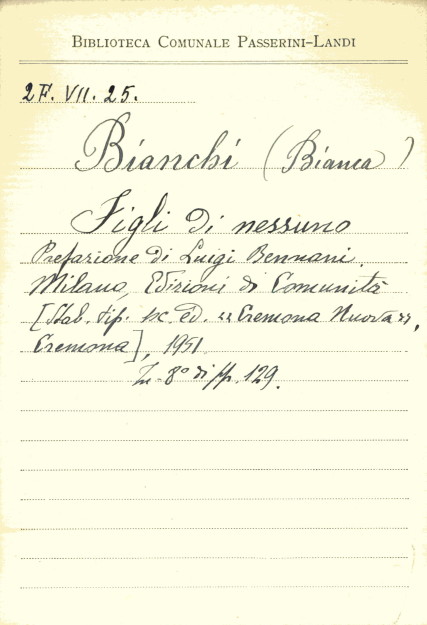 BIBLIOTECA COMUNALE PASSERINI-LANDI
2F. VII. 25.
Bianchi (Bianca)
Figli di nessuno
Prefazione di Luigi Bennani.
Milano, Edizioni di Comunità
[Stab. tip. soc. ed. "Cremona Nuova",
Cremona], 1951
In-8° di pp. 129.